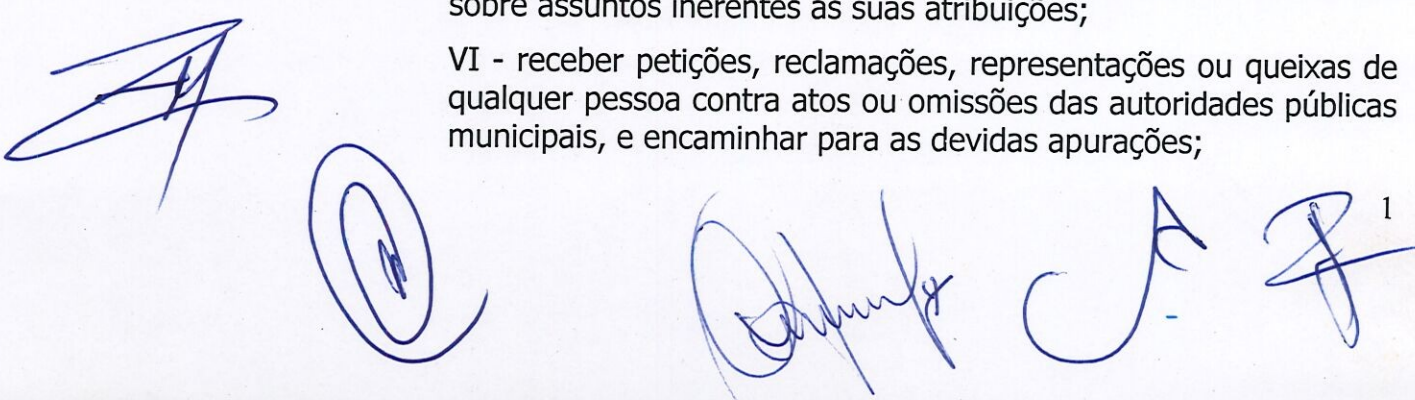 sobre assuntos inerentes às suas atribuições;
VI - receber petições, reclamações, representações ou queixas de
qualquer pessoa contra atos ou omissões das autoridades públicas
municipais, e encaminhar para as devidas apurações;
1